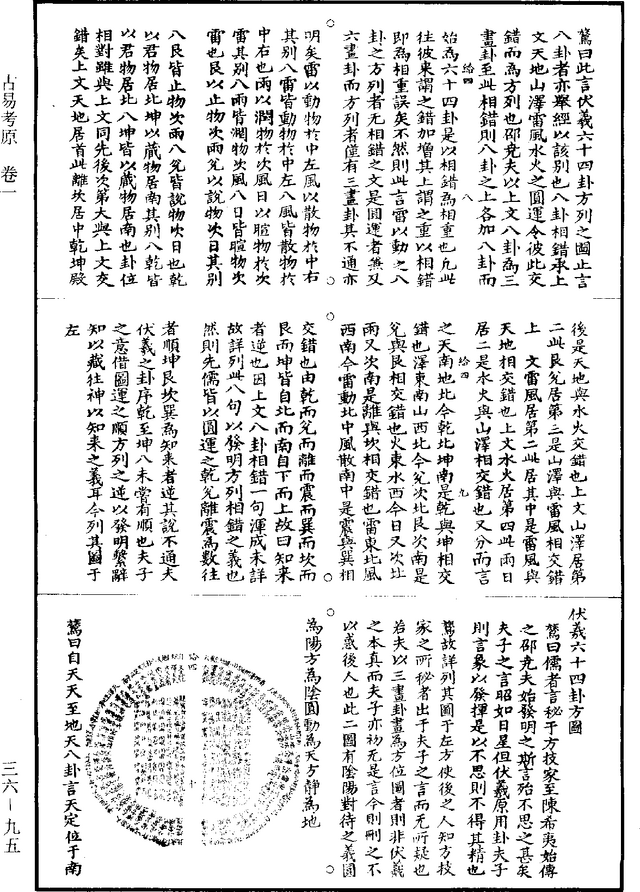 古易考原 卷一
三六—九五
鶱曰此言伏羲六十四卦方列之圖止言
八卦者亦舉經以該別也八卦相錯承上
文天地山澤雷風水火之圓運令彼此交
錯而為方列也邵堯夫以上文八卦為三
畫卦至此相錯則八卦之上各加八卦而
始為六十四卦是以相錯為相重也凡此
往彼來謂之錯加增其上謂之重以相錯
即為相重誤矣不然則此言雷以動之八
卦之方列者无相錯之文是圓運者兼又
六畫卦而方列者僅有三畫卦其不通亦
明矣雷以動物於中左風以散物於中右
其別八雷皆動物於中左八風皆散物於
中右也雨以潤物於次風日以暄物於次
雷其別八雨皆潤物次風八日皆暄物次
雷也艮以止物次雨兌以說物次日其別
八艮皆止物次雨八兌皆說物次日也乾
以君物居北坤以藏物居南其別八乾皆
以君物居北八坤皆以藏物居南也卦位
相對雖與上文同先後次第大與上文交
錯矣上文天地居首此離坎居中乾坤殿
後是天地與水火交錯也上文山澤居第
二此艮兌居第三是山澤與雷風相交錯
上 文雷風居第二此居其中是雷風與
天地相交錯也上文水火居第四此雨日
居二是水火與山澤相交錯也又分而言
之天南地北今乾北坤南是乾與坤相交
錯也澤東南山西北今兌次北艮次南是
兌與艮相交錯也火東水西今日又次北
雨又次南是離與坎相交錯也雷東北風
西南今雷動北中風散南中是震與巽相
交錯也由乾而兌而離而震而巽而坎而
艮而坤皆自北而南自下而上故曰知來
者逆也因上文八卦相錯一句渾成未詳
故詳列此八句以發明方列相錯之義也
然則先儒皆以圓運之乾兌離震為數往
者順坤艮坎巽為知來者逆其說不通夫
伏羲之卦序乾至坤八未嘗有順也夫子
之意借圖運之順方列之逆以發明繫辭
知以藏往神以知來之義耳今列其圖于
左
伏羲六十四卦方圖
鶱曰儒者言秘于方技家至陳希夷始傳
之邵堯夫始發明之斯言殆不思之甚矣
夫子之言昭如日星但伏羲原用卦夫子
則言象以發揮是以不思則不得其精也
鶱故詳列其圖于左方使後之人知方技
家之所秘者出于夫子之言而无所疑也
若夫以三畫卦畫為方位圖者則非伏羲
之本真而夫子亦初无是言今則刪之不
以惑後人也此二圖有陰陽對待之義圓
為陽方為陰圓動為天方靜為地
鶱曰自天天至地天八卦言天定位于南